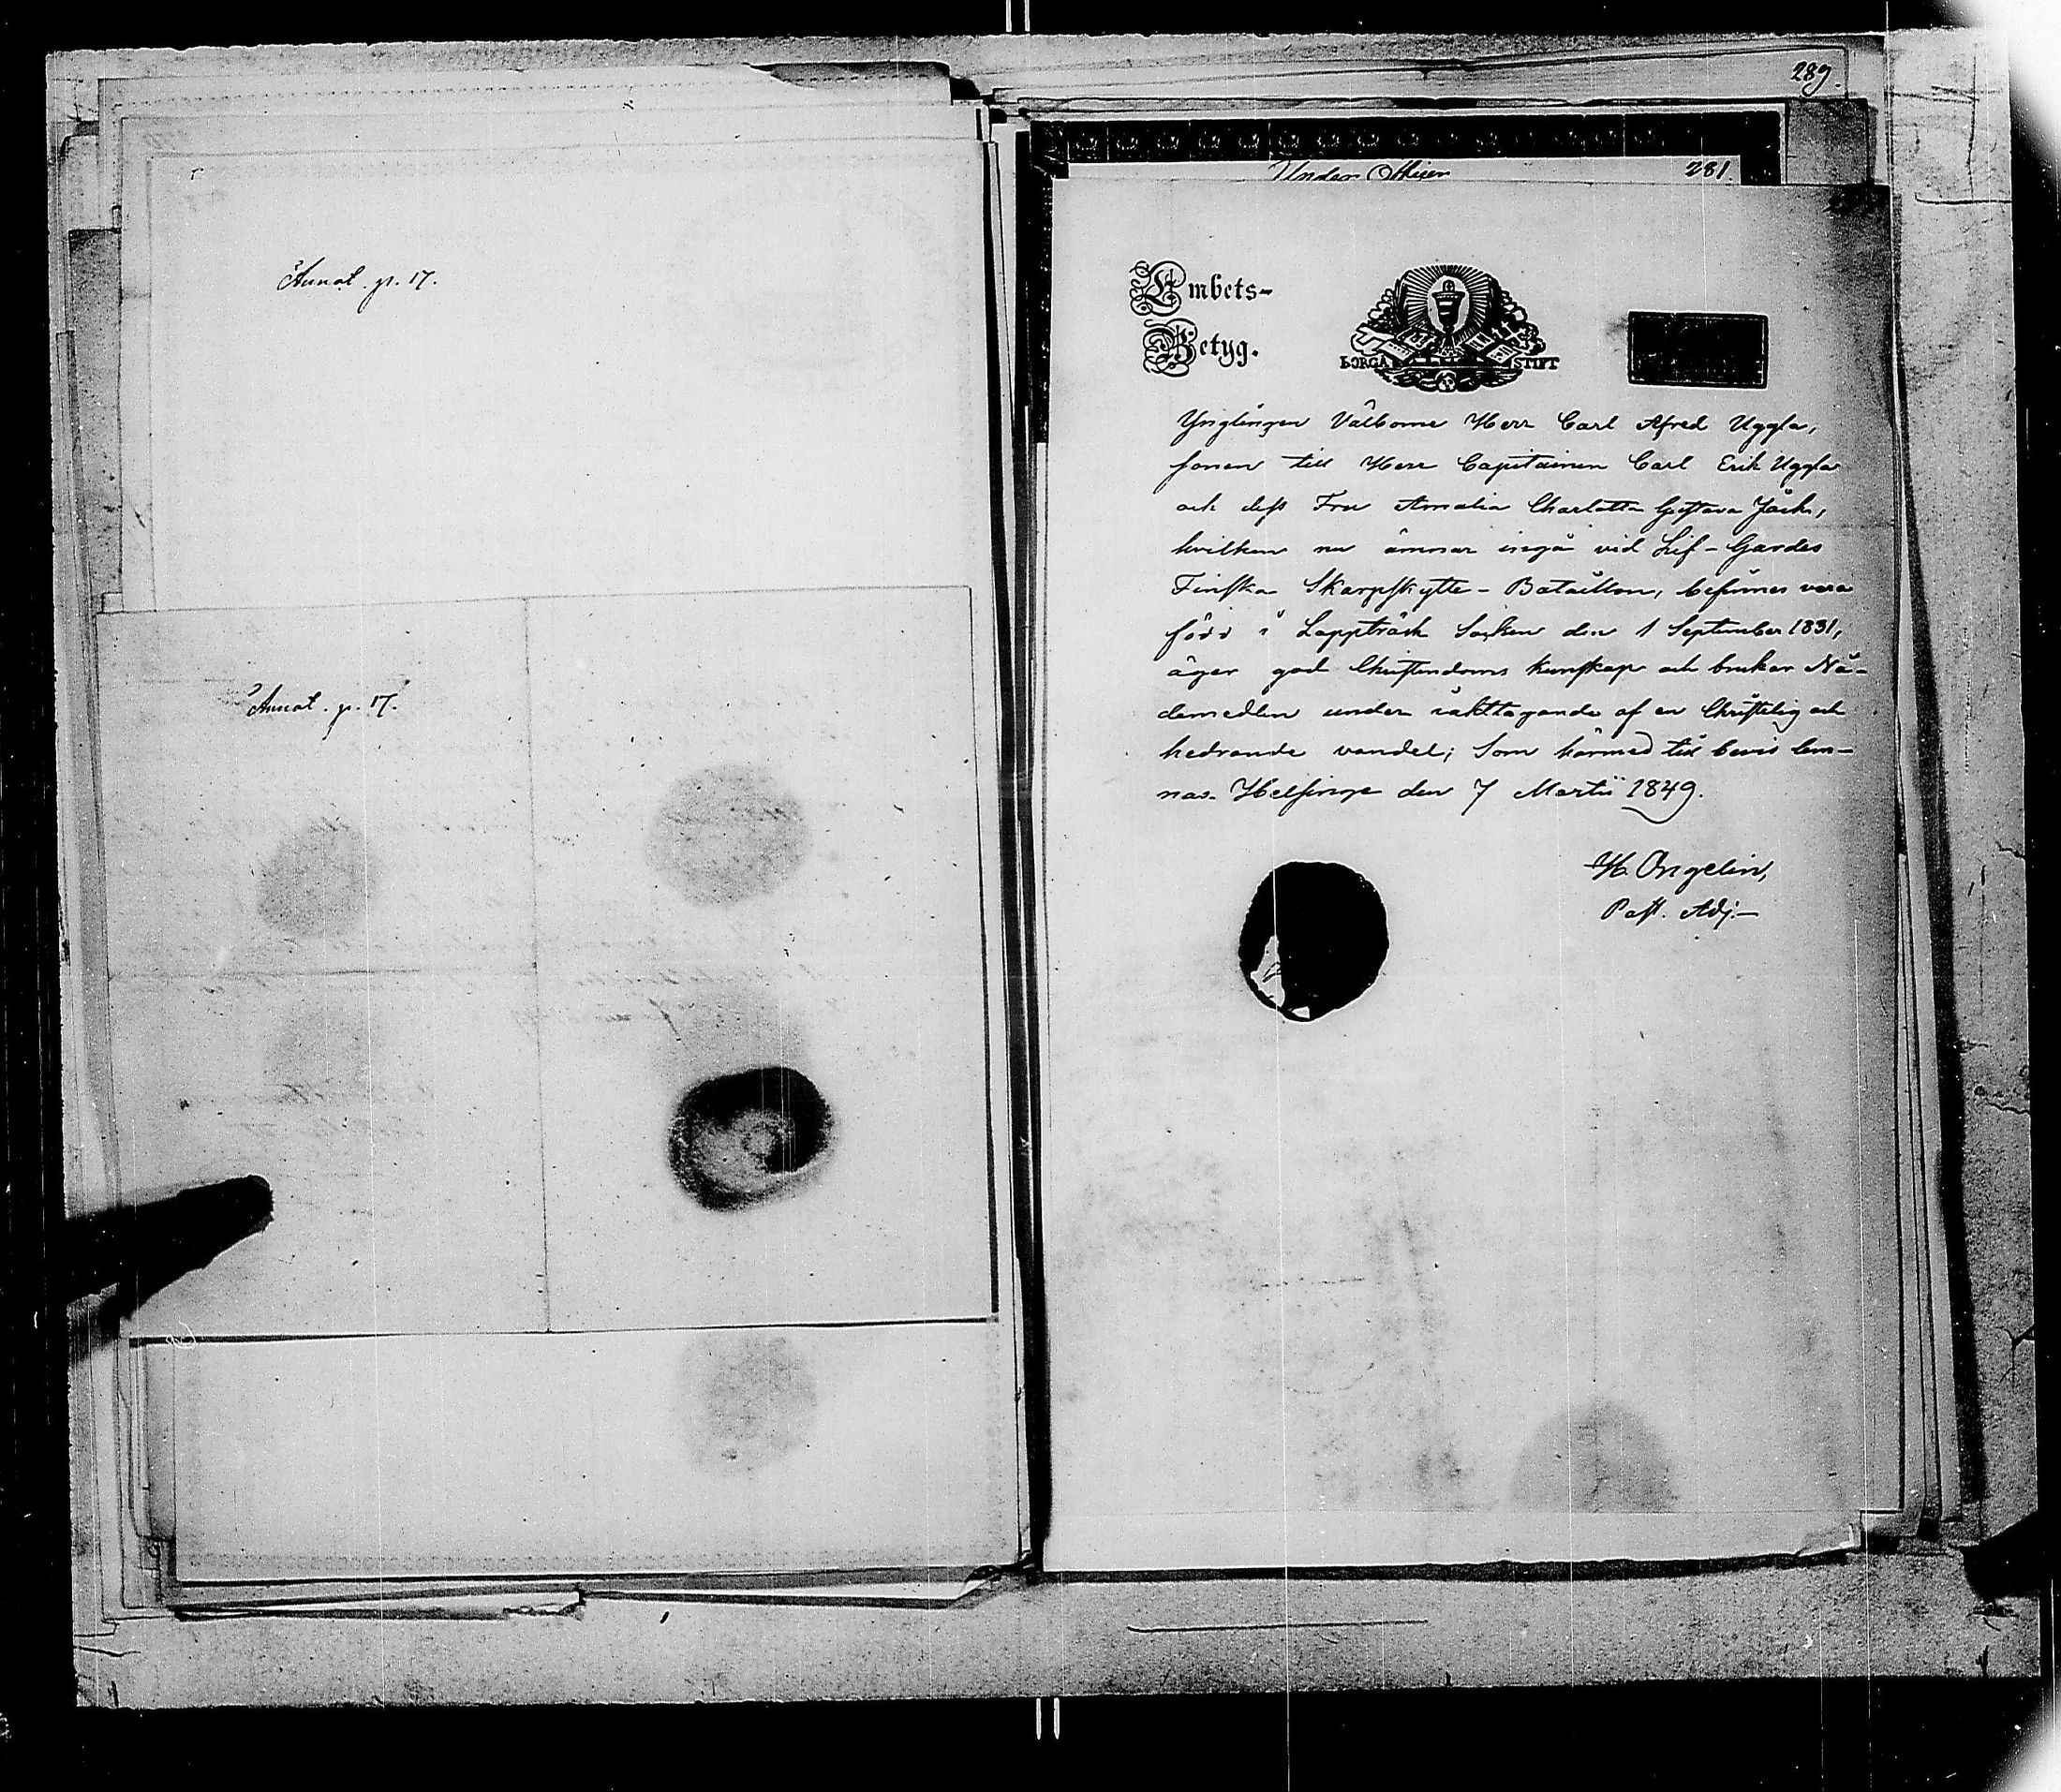 Annot. p. 17.
Annot. p. 17.
289.
Under Officer
281.
Embets-
Betyg.
BORGÅ STIFT
Ynglingen Välborne Herr Carl Alfred Uggla,
sonen till Herr Capitainen Carl Erik Uggla
och dess Fru Amalia Charlotta Gustava Jäck,
hvilken nu ämnar ingå vid Lif-Gardes
Finska Skarpskytte-Bataillon, befinnes vara
född i Lappträsk Socken den 1 September 1831,
äger god Christendoms kunskap och brukar Nå-
demedlen under iakttagande af en Christelig och
hedrande vandel; Som härmed till bevis lem-
nas. Helsinge den 7 Martii 1849.
H. Ongelin,
Past. Adj.